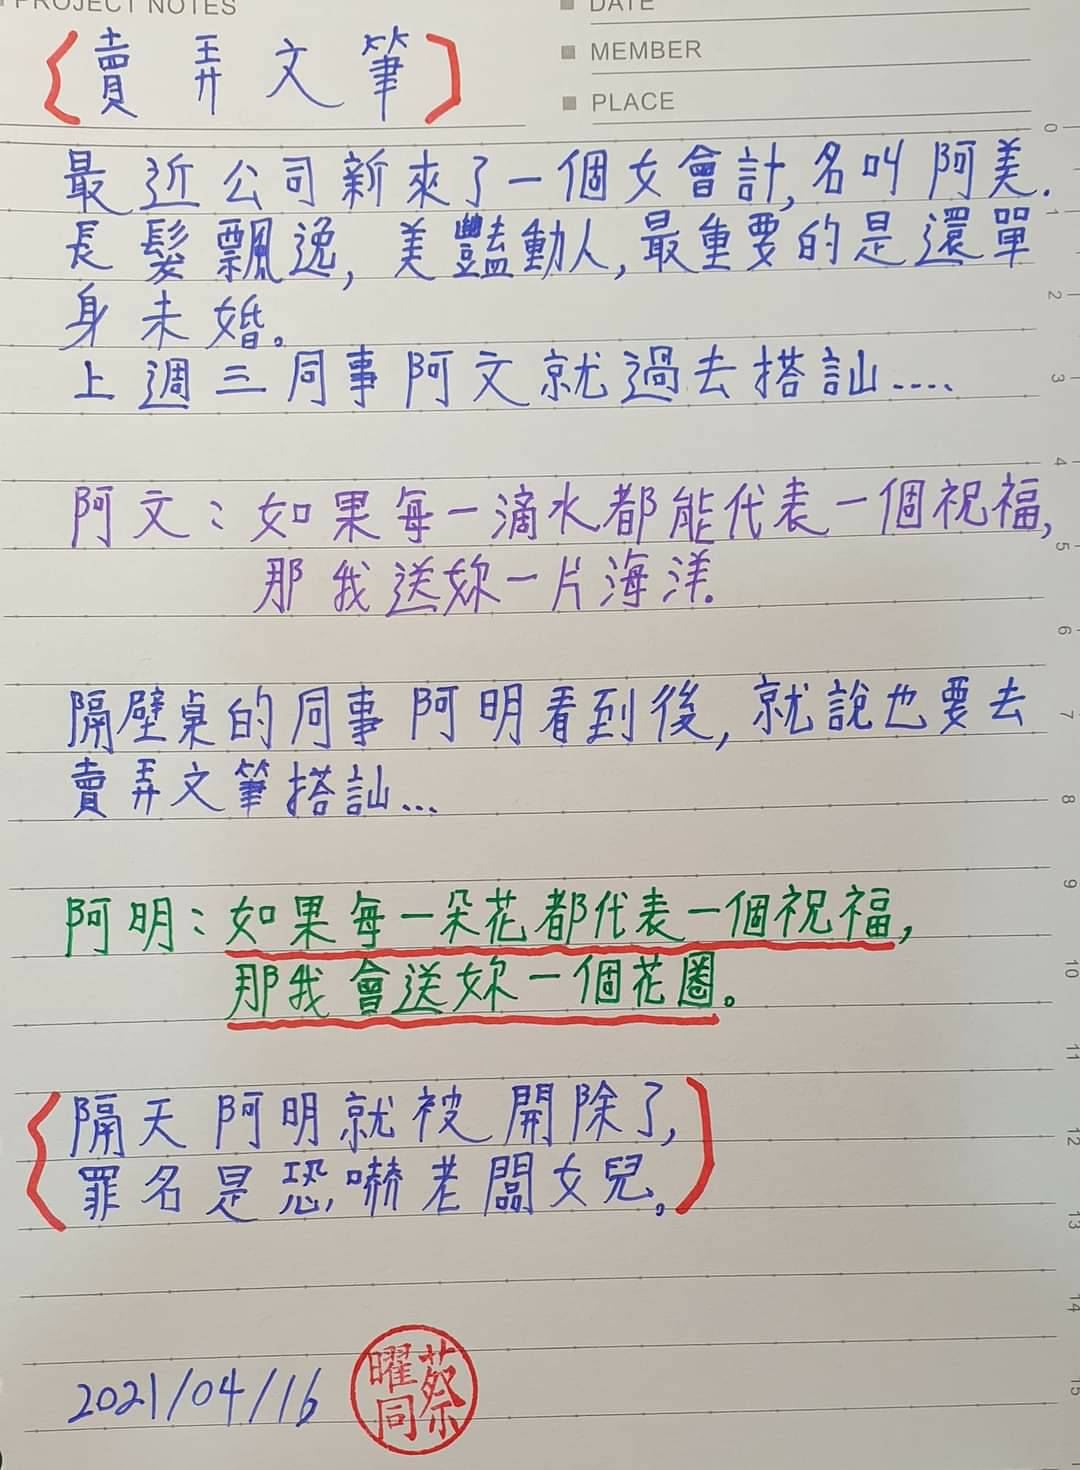 PROJECT NOTES
DATE
MEMBER
PLACE
〔賣弄文筆〕
最近公司新來了一個女會計,名叫阿美.
長髮飄逸,美豔動人,最重要的是還單
身未婚。
上週三同事阿文就過去搭訕....
阿文:如果每一滴水都能代表一個祝福,
那我送妳一片海洋.
隔壁桌的同事阿明看到後,就說也要去
賣弄文筆搭訕...
阿明:如果每一朵花都代表一個祝福,
那我會送妳一個花圈。
隔天阿明就被開除了,
罪名是恐嚇老闆女兒。
2021/04/16
蔡曜同
0
1
2
3
4
5
6
7
8
9
10
11
12
13
14
15